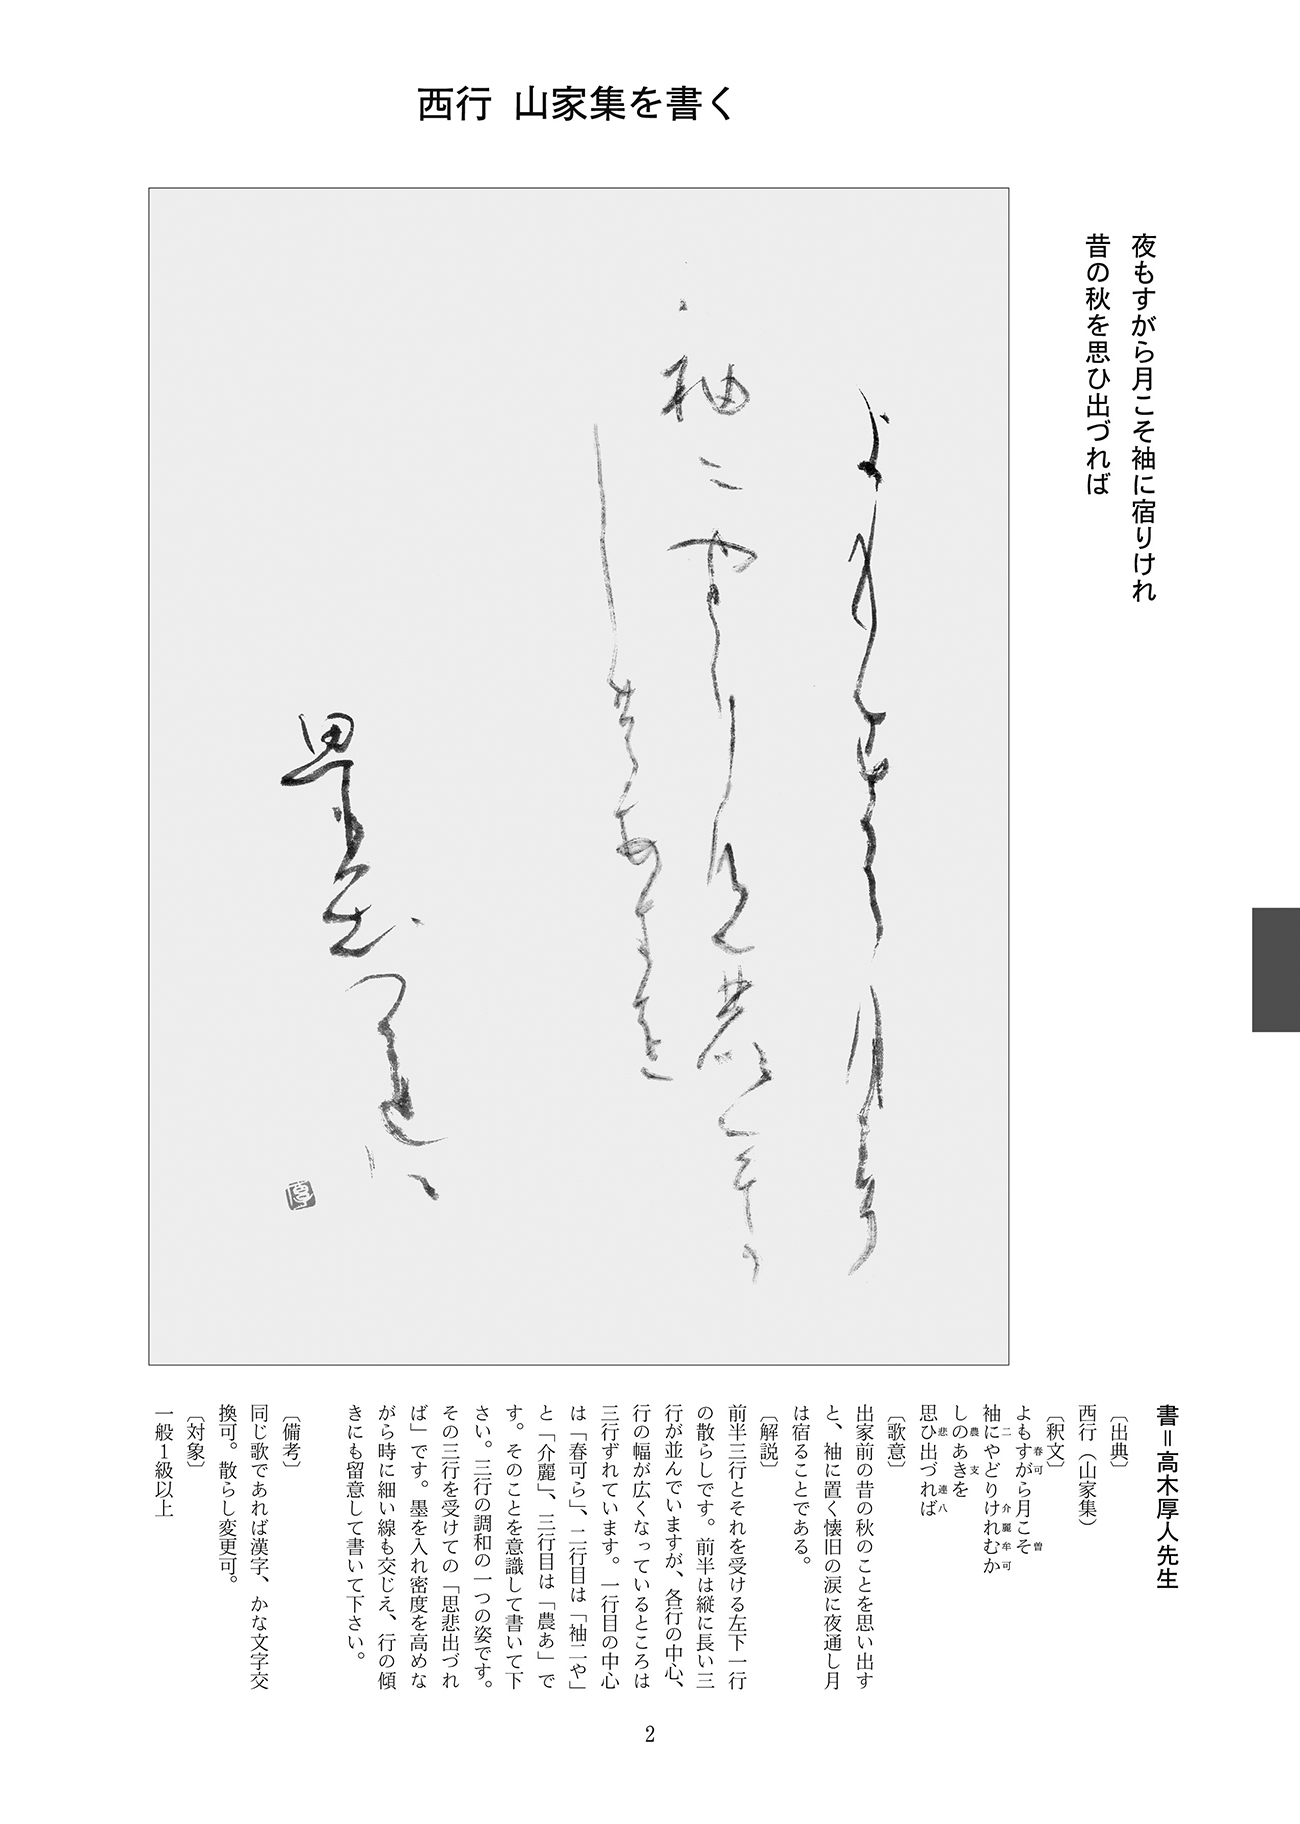 西行 山家集を書く
夜もすがら月こそ袖に宿りけれ
昔の秋を思ひ出づれば
書＝高木厚人先生
〔出典〕
西行（山家集）
〔釈文〕
よもすがら月こそ
春可 曽
袖にやどりけれむか
二 介麗牟可
しのあきを
農 支
思ひ出づれば
悲 連八
〔歌意〕
出家前の昔の秋のことを思い出す
と、袖に置く懐旧の涙に夜通し月
は宿ることである。
〔解説〕
前半三行とそれを受ける左下一行
の散らしです。前半は縦に長い三
行が並んでいますが、各行の中心、
行の幅が広くなっているところは
三行ずれています。一行目の中心
は「春可ら」、二行目は「袖二や」
と「介麗」、三行目は「農あ」で
す。そのことを意識して書いて下
さい。三行の調和の一つの姿です。
その三行を受けての「思悲出づれ
ば」です。墨を入れ密度を高めな
がら時に細い線も交じえ、行の傾
きにも留意して書いて下さい。
〔備考〕
同じ歌であれば漢字、かな文字交
換可。散らし変更可。
〔対象〕
一般１級以上
よも春可ら月こ曽
袖二やどり介麗牟可
し農あ支を
思悲出づ連八
厚
2